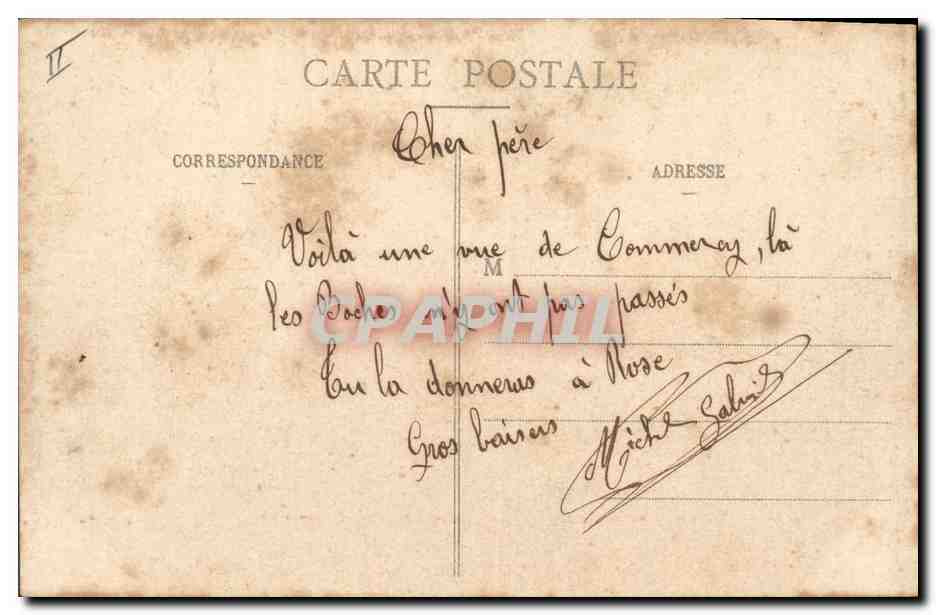 II
CARTE POSTALE
Cher père
CORRESPONDANCE
ADRESSE
Voilà une vue de Commercy, là
M
les Boches n'y ont pas passés
CPAPHIL
Tu la donneras à Rose
Gros baisers
Michel